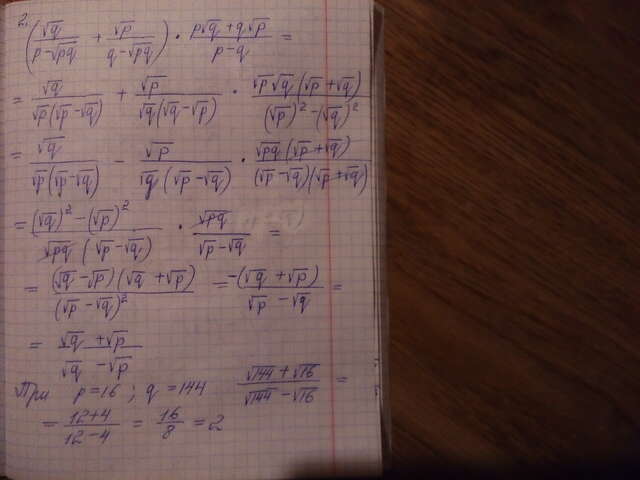 2.
(√q/(p-√pq) + √p/(q-√pq)) · (p√q+q√p)/(p-q) =
= √q/(√p(√p-√q)) + √p/(√q(√q-√p)) · (√p√q(√p+√q))/((√p)²-(√q)²)
= √q/(√p(√p-√q)) - √p/(√q(√p-√q)) · (√pq(√p+√q))/((√p-√q)(√p+√q))
= ((√q)²-(√p)²)/(√pq(√p-√q)) · √pq/(√p-√q) =
= ((√q-√p)(√q+√p))/(√p-√q)² = -(√q+√p)/(√p-√q) =
= (√q+√p)/(√q-√p)
При p=16; q=144 (√144+√16)/(√144-√16) =
= (12+4)/(12-4) = 16/8 = 2